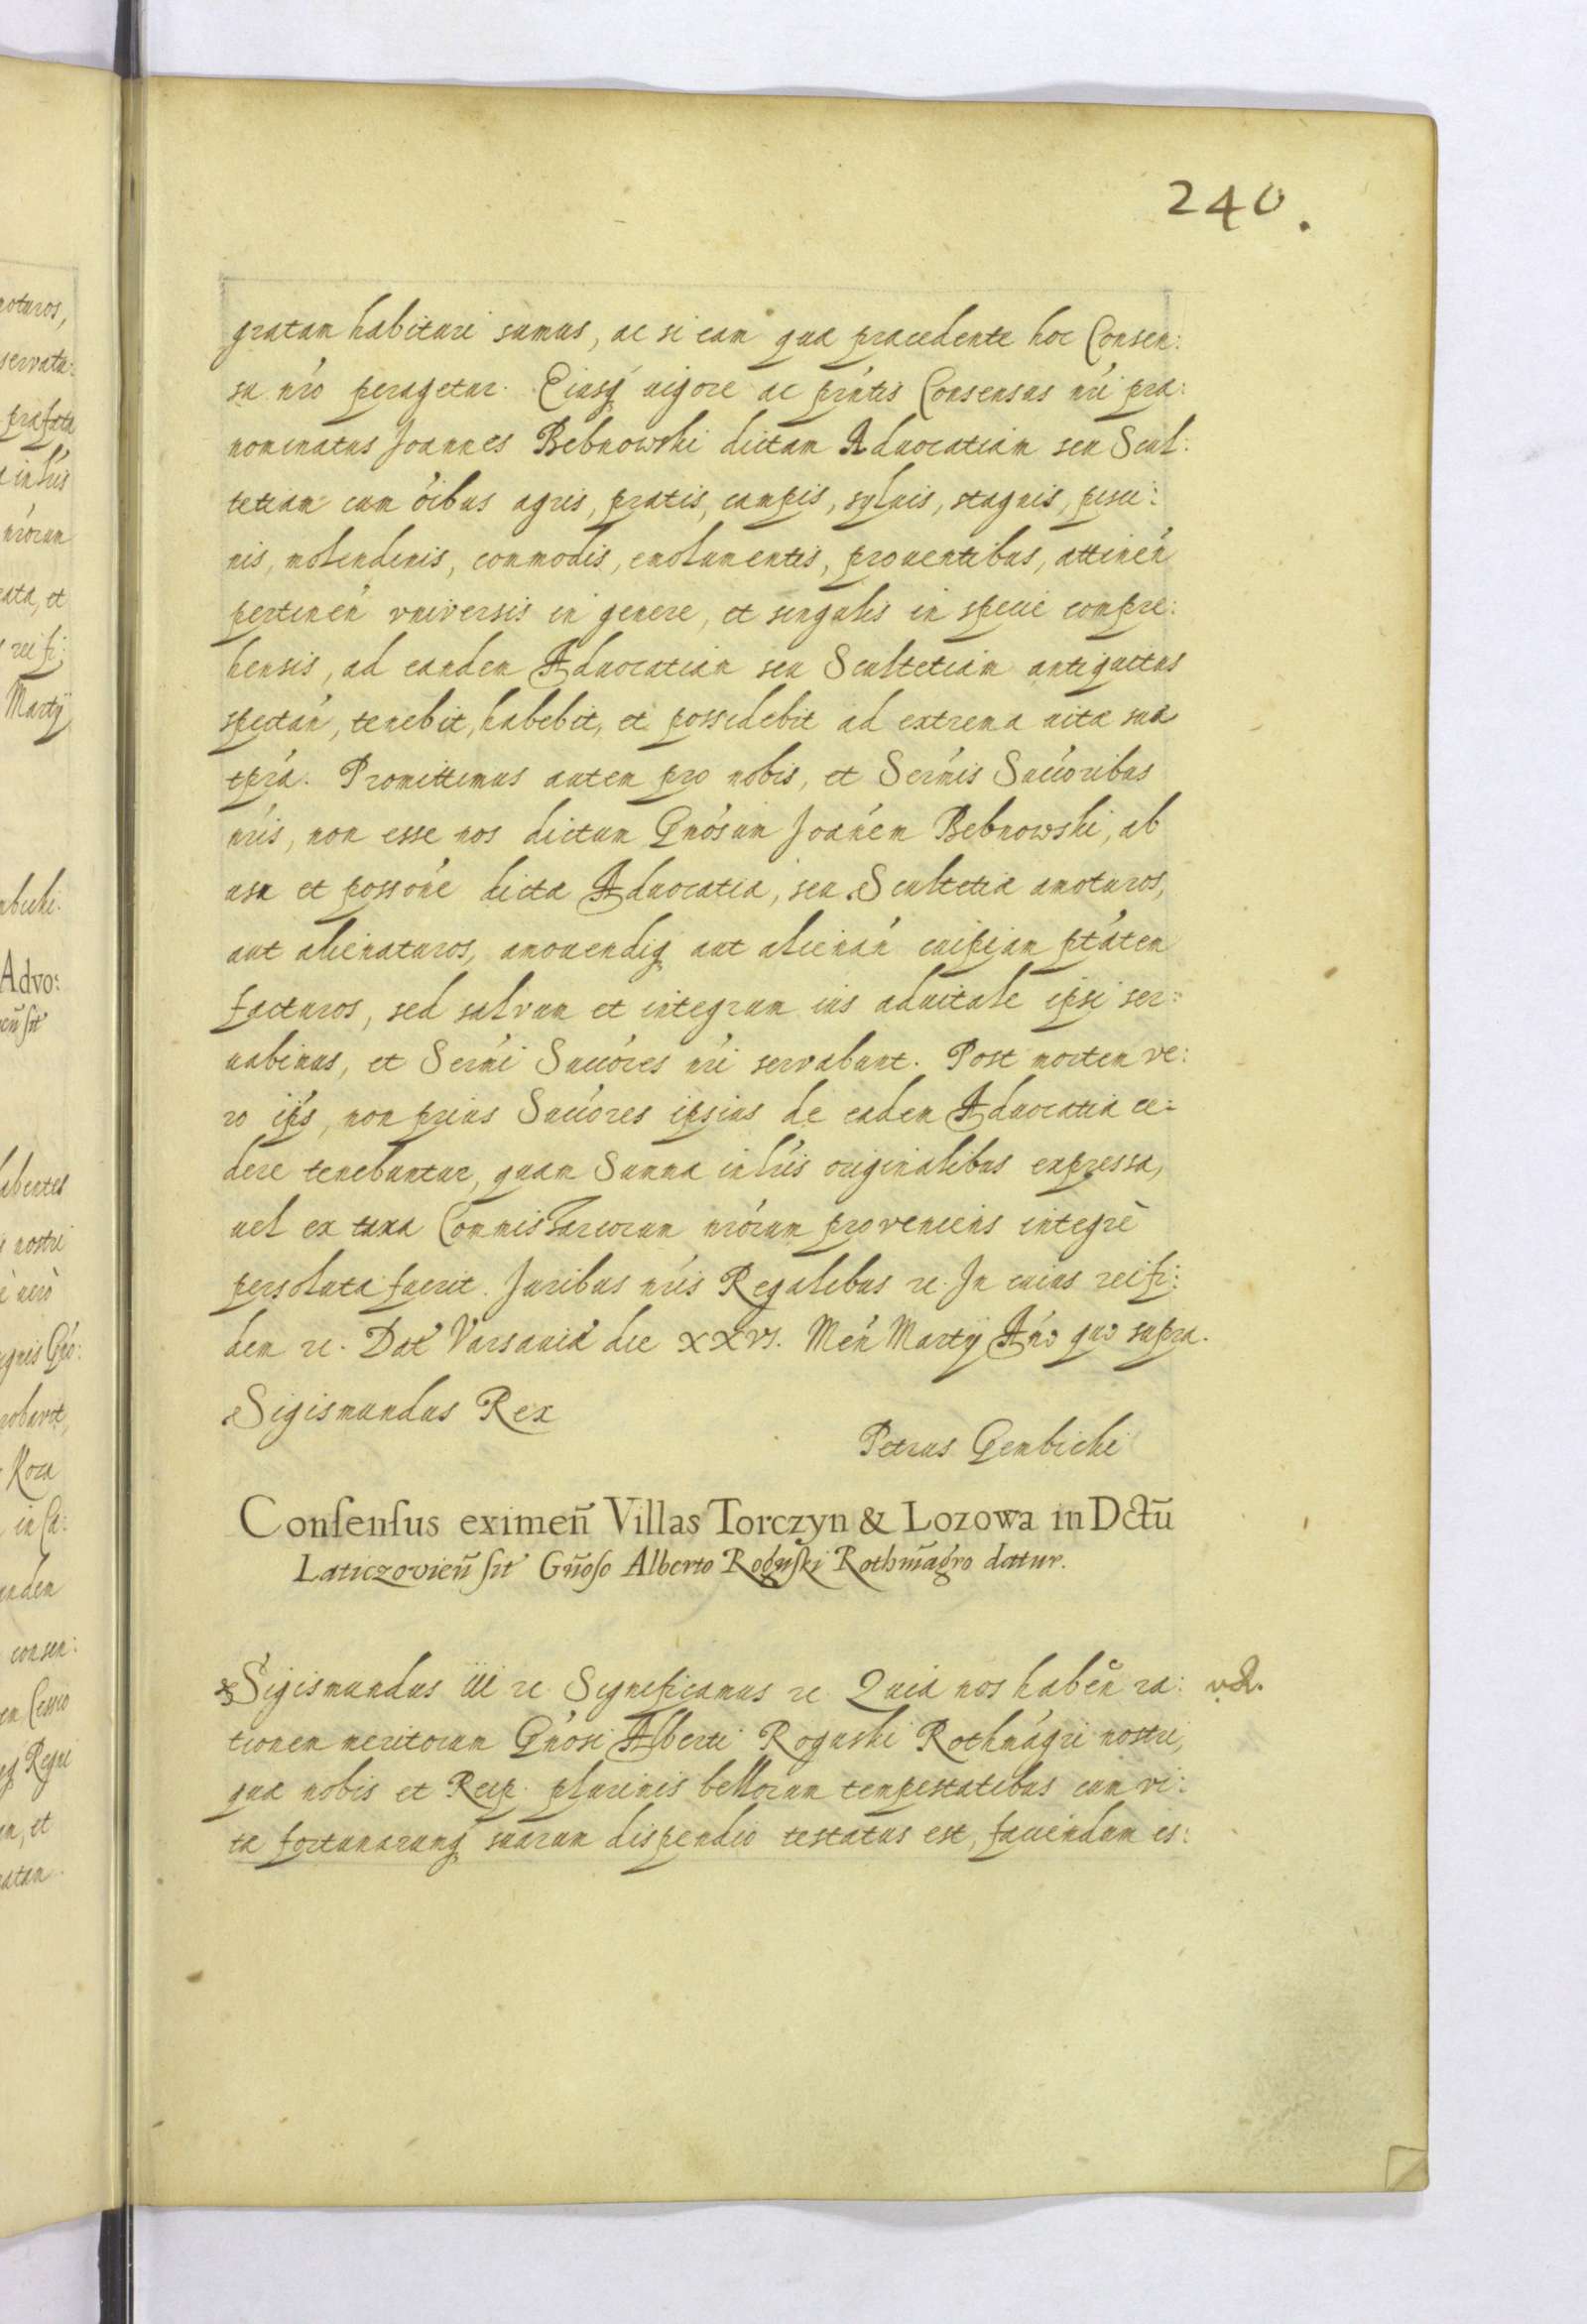 240.
gratam habituri sumus, ac si eam quæ præcedente hoc Consen:
su nr̃o peragetur. Eiusq́ uigore ac pr̃ntis Consensus nr̃i præ:
nominatus Joannes Bebnowski dictam Aduocatiam seu Scul:
tetiam cum õibus agris, pratis, campis, syluis, stagnis, pisci:
nis, molendinis, commodis, emolumentis, prouentibus, attineñ
pertineñ vniversis in genere, et singulis in specie compre:
hensis, ad eandem Aduocatiam seu Scultetiam antiquitus
spectañ, tenebit, habebit, et possidebit ad extrema uitæ suæ
tp̃ra. Promittimus autem pro nobis, et Serm̃is Succ̃oribus
nr̃is, non esse nos dictum Gnõsum Joañem Bebnowski, ab
usu et possõne dictæ Aduocatiæ, seu Scultetiæ amoturos,
aut alienaturos, amouendiq́ aut alienañ cuipiam ptãtem
facturos, sed salvum et integrum ius aduitale ipsi ser:
uabimus, et Serm̃i Succ̃ores nr̃i servabunt. Post mortem ve:
ro ip̃s, non prius Succ̃ores ipsius de eadem Aduocatia ce:
dere tenebuntur, quam Summa in lr̃is originalibus expressa,
uel ex taxa Commissariorum nr̃orum proveniens integrè
persoluta fuerit. Juribus nr̃is Regalibus rc. In cuius rei fi:
dem rc. Dat̃ Varsauiæ die XXVI. Meñ Martij Año quo supra.
Sigismundus Rex
Petrus Gembicki
Consensus eximeñ Villas Torczyn & Lozowa in Dctũ
Laticzovieñ sit̃ Gñoso Alberto Roguski Rothm̃agro datur.
Sigismundus III rc Significamus rc Quia nos habeñ ra:
tionem meritorum Gnõsi Alberti Roguski Rothmãgri nostri,
quæ nobis et Reip. plurimis bellorum tempestatibus cum vi:
tæ fortunarumq́ suarum dispendio testatus est, faciendum es: